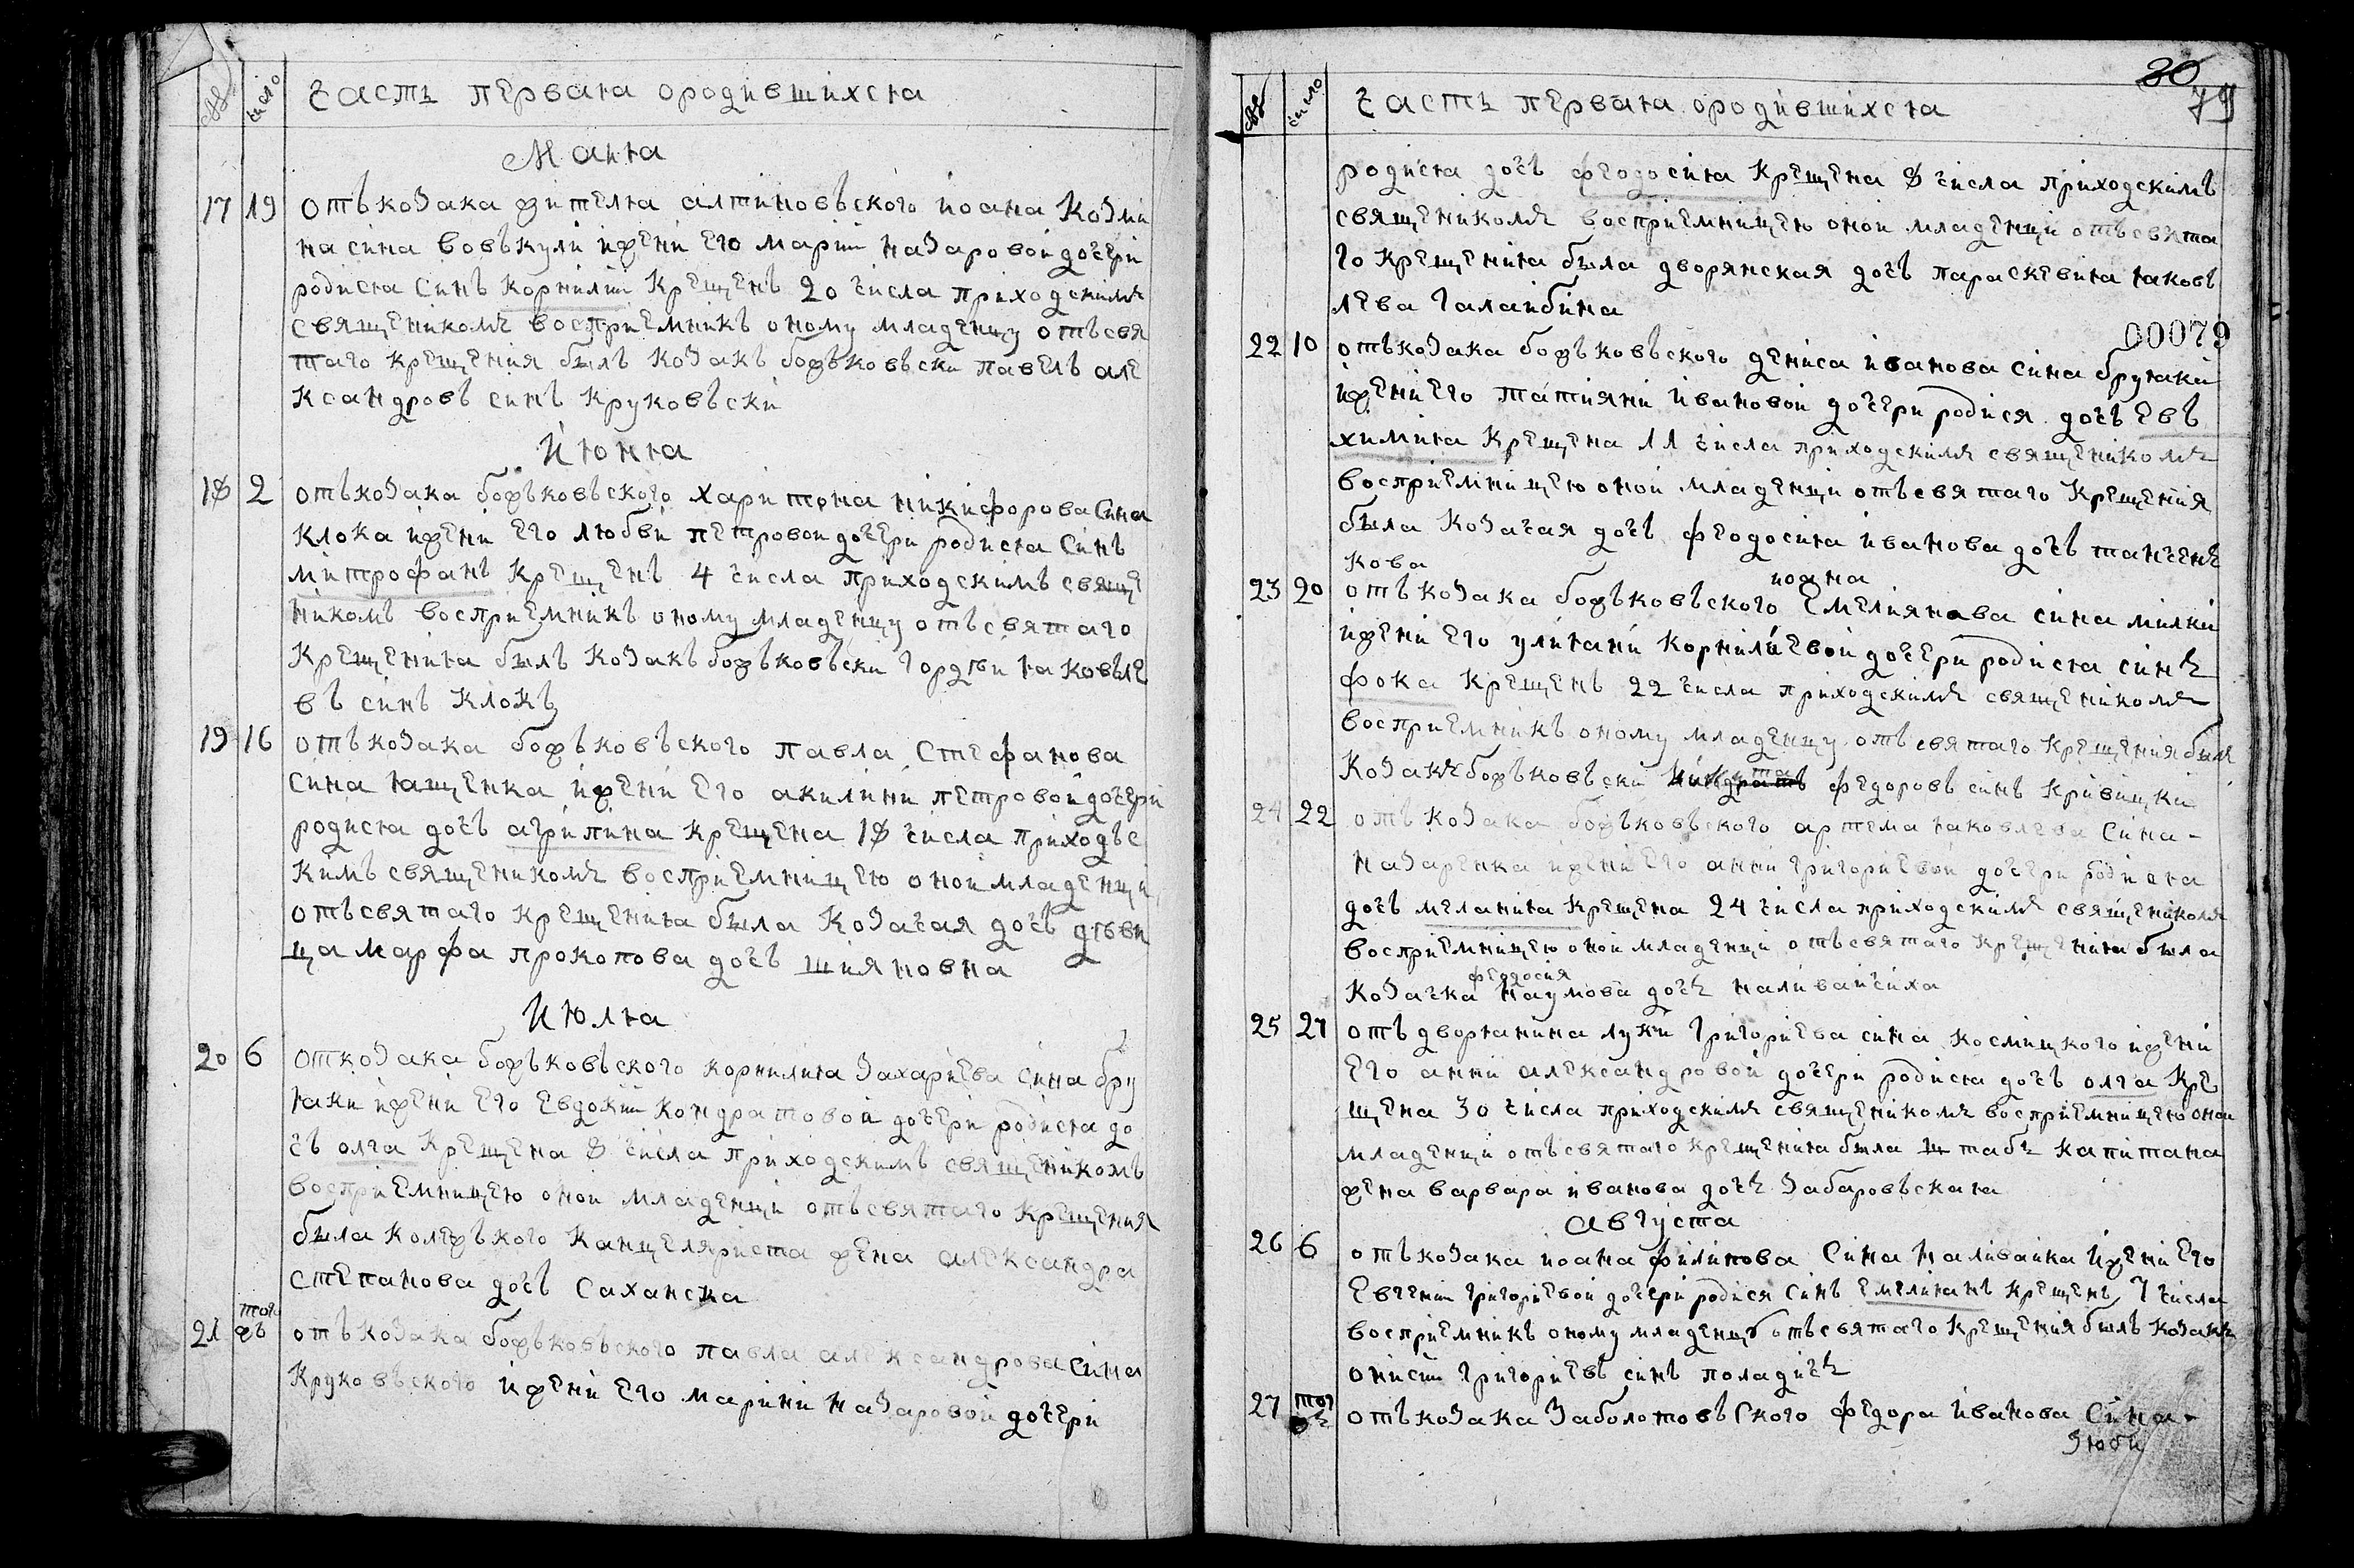 число
часть первая ородившихся
Маия
17 19 отъ козака жителя алтиновъского иоана Козми
на сина вовъкули ижени его марии назаровой дочери
родися Синъ Корнилий Крещенъ 20 числа приходскимъ
священикомъ восприемникъ оному младенцу отъ свя
таго крещения былъ Козакъ божъковъски павелъ але
ксандровъ синъ круковъски
Июня
18 2 отъ козака божъковъского харитона никифорова Сина
клока ижени его любви петровой дочери родися Синъ
митрофанъ Крещенъ 4 числа приходскимъ свяще
никомъ восприемникъ оному младенцу отъ святаго
Крещения былъ Козакъ божъковъски гордѣи яковле
въ синъ клокъ
19 16 отъ козака божъковъского павла Стефанова
Сина ященка ижени его акилини петровой дочери
родися дочъ агрипина крещена 18 числа приходъс
кимъ священикомъ восприемницею оной младенци
отъ святаго крещения была Козачая дочъ дѣви
ца марфа прокопова дочъ шияновна
Июля
20 6 от козака божъковъского корнилия Захариева Сина бру
яки ижени его евдокии кондратовой дочери родися до
чъ олга крещена 8 числа приходскимъ священикомъ
восприемницею оной младенци отъ святаго крещения
была колежъкого Канцеляриста жена александра
степанова дочъ Саханска
21 тогожъ отъ козака божъковъского павла александрова Сина
Круковъского ижени его марини назаровой дочери
30
79
число
часть первая ородившихся
родися дочъ феодосия Крещена 8 числа приходскимъ
священикомъ восприемницею оной младенци отъ свята
го крещения была дворянская дочъ параскевия яковъ
лева галаибина
00079
22 10 отъ козака божъковъского дениса иванова сина бруяки
ижени его татияни ивановой дочери родися дочъ евъ
химия Крещена 11 числа приходскимъ священикомъ
восприемницею оной младенци отъ святаго крещения
была Козачая дочъ феодосия иванова дочъ танчене
кова
иоана
23 20 отъ козака божъковъского емелиянова сина милки
ижени его улияни корнилиевой дочери родися синъ
фока крещенъ 22 числа приходскимъ священикомъ
восприемникъ оному младенцу отъ святаго крещения былъ
Козакъ божъковъски федоровъ синъ кривицки
24 22 отъ козака божъковъского артема яковлева Сина
назаренка ижени его анни григориевой дочери родися
дочъ мелания крещена 24 числа приходскимъ священикомъ
восприемницею оной младенци отъ святаго крещения была
феодосия
Козачка наумова дочъ наливайчиха
25 27 отъ дворянина луки григориева сина космицкого ижени
его анни александровой дочери родися дочъ олга кре
щена 30 числа приходскимъ священикомъ восприемницею оной
младенци отъ святаго крещения была штабъ капитана
жена варвара иванова дочъ Забаровъская
августа
26 6 отъ козака иоана филипова Сина наливайка ижени его
евгении григориевой дочери родися Синъ емелиянъ крещенъ 7 числа
восприемникъ оному младенцу отъ святаго крещения былъ козакъ
онисии григориевъ синъ поладичъ
27 тогожъ отъ козака Заболотовъского федора иванова Сина
Зюби